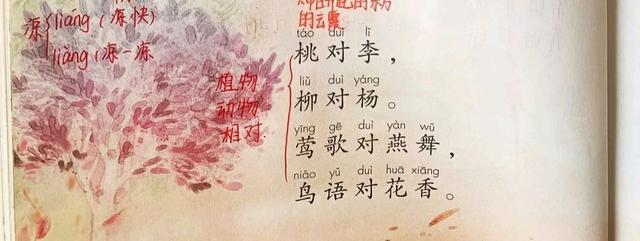 凉 liáng (凉快)
liàng (凉一凉
的云霞
植物
动物
相对
táo duì lǐ
桃对李，
liǔ duì yáng
柳对杨。
yīng gē duì yàn wǔ
莺歌对燕舞，
niǎo yǔ duì huā xiāng
鸟语对花香。